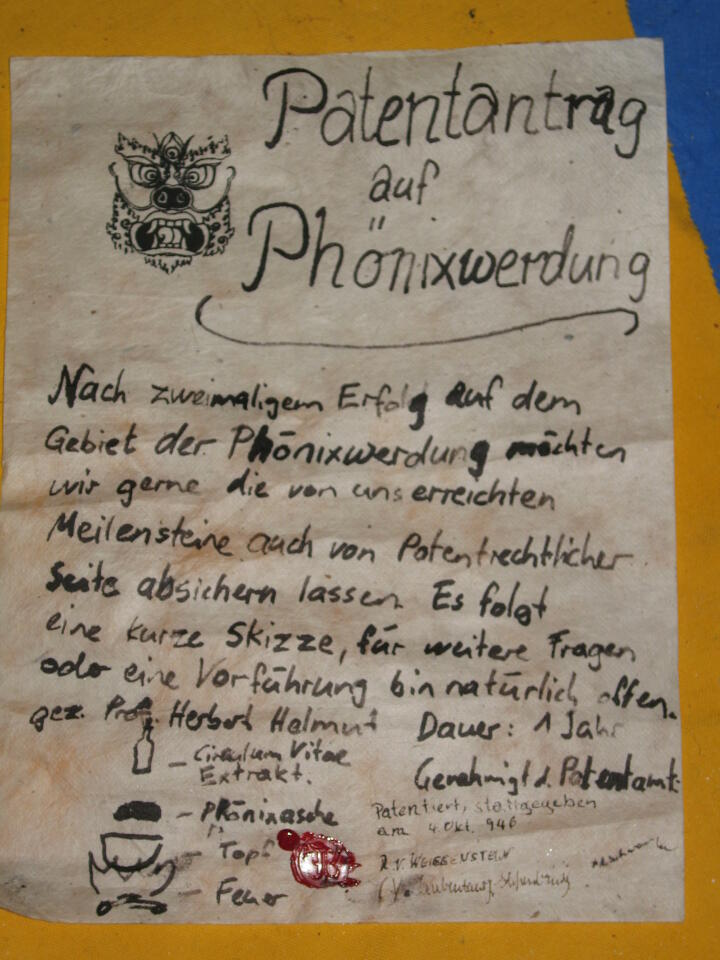 Patentantrag
auf
Phönixwerdung
Nach zweimaligem Erfolg auf dem
Gebiet der Phönixwerdung möchten
wir gerne die von uns erreichten
Meilensteine auch von Patentrechtlicher
Seite absichern lassen. Es folgt
eine kurze Skizze, für weitere Fragen
oder eine Vorführung bin natürlich offen.
gez. Prof. Herbert Helmut
Dauer: 1 Jahr
Genehmigt d. Patentamt.
- Circulum Vitae
Extrakt.
- Phönixasche
- Topf
- Feuer
Patentiert, stattgegeben
am 4. Okt. 946
R. V. WEISSENSTEIN